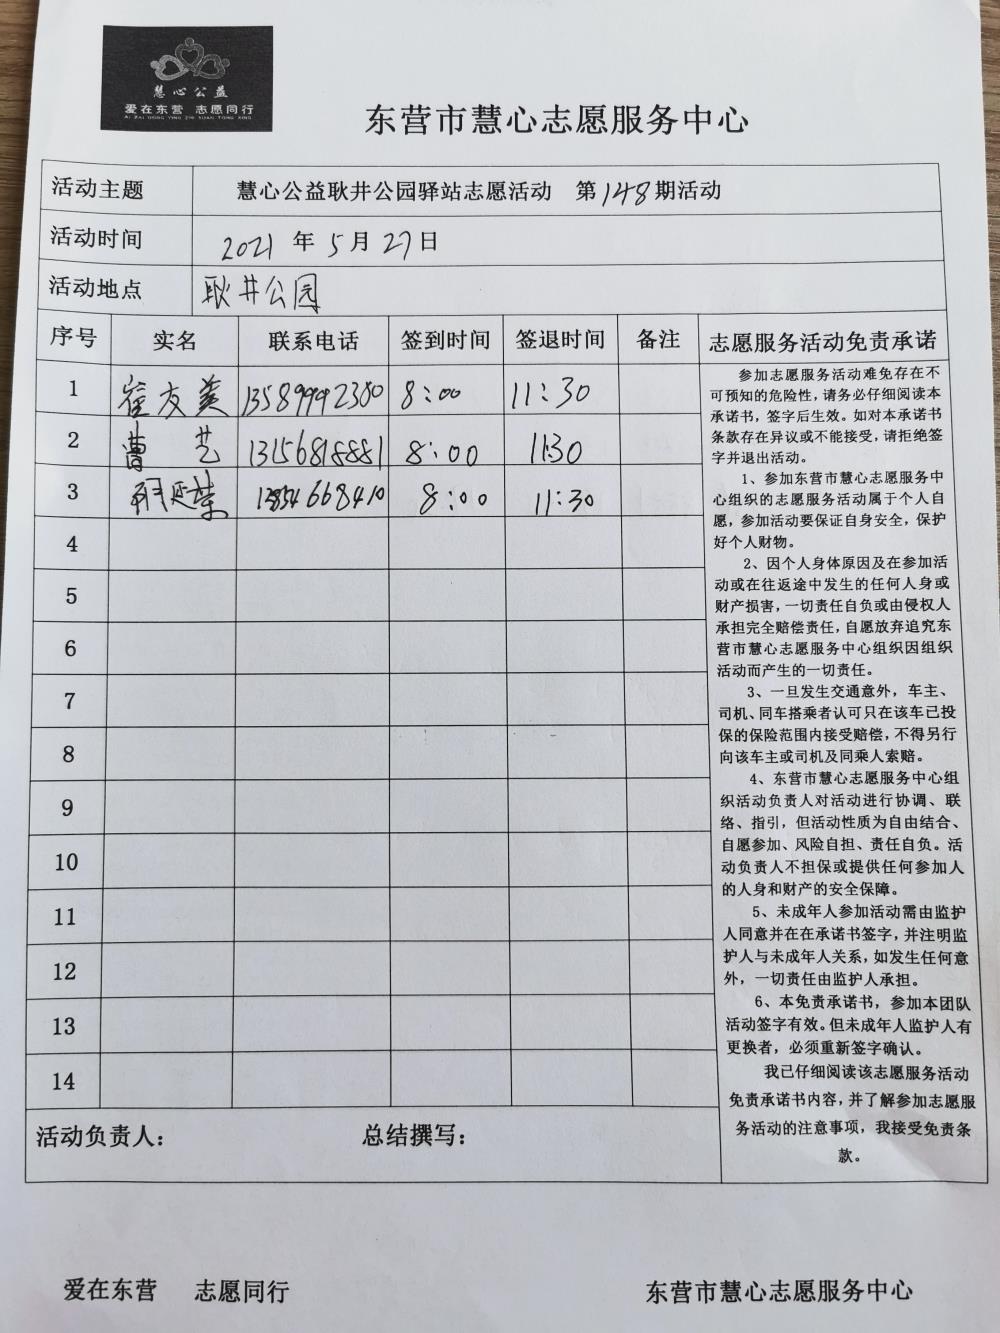 慧心公益
爱在东营 志愿同行
AI ZAI DONG YING ZHI YUAN TONG XING
东营市慧心志愿服务中心
活动主题 慧心公益耿井公园驿站志愿活动 第148期活动
活动时间 2021 年 5 月 27 日
活动地点 耿井公园
序号 实名 联系电话 签到时间 签退时间 备注 志愿服务活动免责承诺
1 崔友美 13589992380 8:00 11:30
2 曹艺 13156818881 8:00 11:30
3 13854668410 8:00 11:30
4
5
6
7
8
9
10
11
12
13
14
参加志愿服务活动难免存在不
可预知的危险性，请务必仔细阅读本
承诺书，签字后生效。如对本承诺书
条款存在异议或不能接受，请拒绝签
字并退出活动。
1、参加东营市慧心志愿服务中
心组织的志愿服务活动属于个人自
愿，参加活动要保证自身安全，保护
好个人财物。
2、因个人身体原因及在参加活
动或在往返途中发生的任何人身或
财产损害，一切责任自负或由侵权人
承担完全赔偿责任，自愿放弃追究东
营市慧心志愿服务中心组织因组织
活动而产生的一切责任。
3、一旦发生交通意外，车主、
司机、同车搭乘者认可只在该车已投
保的保险范围内接受赔偿，不得另行
向该车主或司机及同乘人索赔。
4、东营市慧心志愿服务中心组
织活动负责人对活动进行协调、联
络、指引，但活动性质为自由结合、
自愿参加、风险自担、责任自负。活
动负责人不担保或提供任何参加人
的人身和财产的安全保障。
5、未成年人参加活动需由监护
人同意并在在承诺书签字，并注明监
护人与未成年人关系，如发生任何意
外，一切责任由监护人承担。
6、本免责承诺书，参加本团队
活动签字有效。但未成年人监护人有
更换者，必须重新签字确认。
我已仔细阅读该志愿服务活动
免责承诺书内容，并了解参加志愿服
务活动的注意事项，我接受免责条
款。
活动负责人： 总结撰写：
爱在东营 志愿同行 东营市慧心志愿服务中心